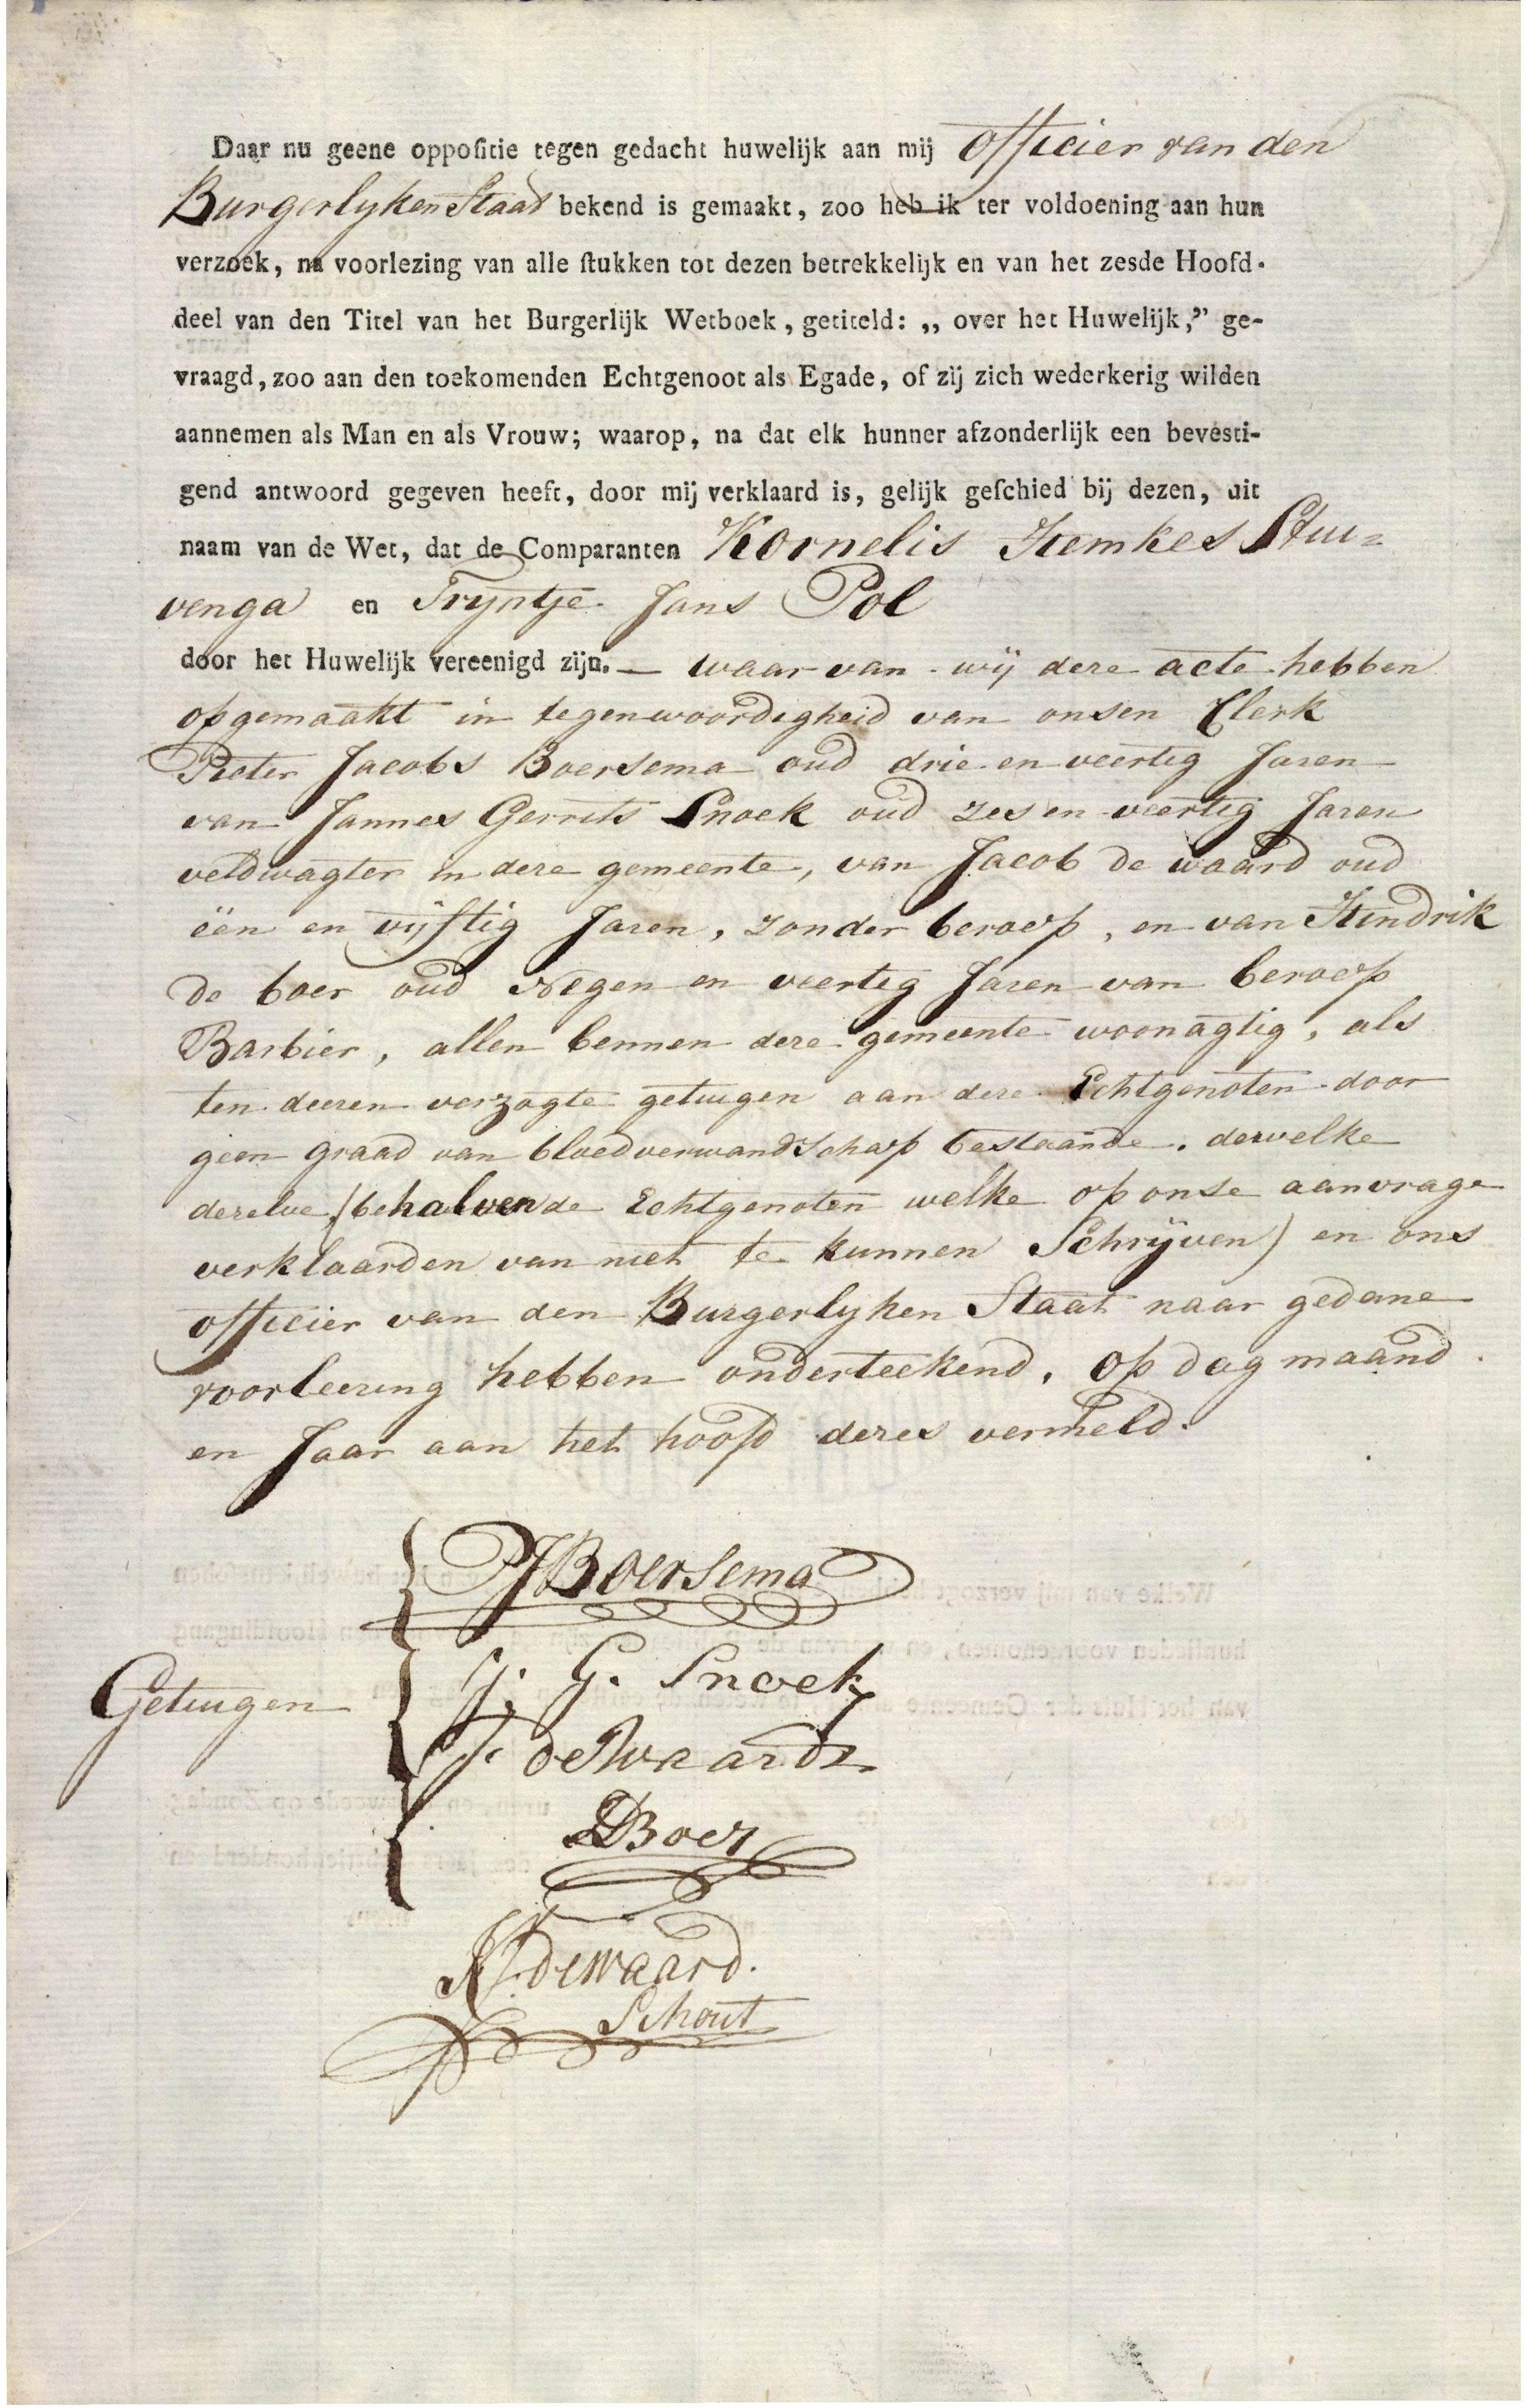 Daar nu geene oppositie tegen gedacht huwelijk aan mij officier van den
Burgerlyken Staat bekend is gemaakt, zoo heb ik ter voldoening aan hun
verzoek, na voorlezing van alle stukken tot dezen betrekkelijk en van het zesde Hoofd-
deel van den Titel van het Burgerlijk Wetboek, getiteld: „ over het Huwelijk,” ge-
vraagd, zoo aan den toekomenden Echtgenoot als Egade, of zij zich wederkerig wilden
aannemen als Man en als Vrouw; waarop, na dat elk hunner afzonderlijk een bevesti-
gend antwoord gegeven heeft, door mij verklaard is, gelijk geschied bij dezen, uit
naam van de Wet, dat de Comparanten Kornelis Hemkes Stui=
venga en Tryntje Jans Pol
door het Huwelijk vereenigd zijn. — waar van wij deze acte hebben
opgemaakt in tegenwoordigheid van onsen Clerk
Pieter Jacobs Boersema oud drie en veertig Jaren
van Jannes Gerrits Snoek oud zes en veertig Jaren
veldwagter in deze gemeente, van Jacob de waard oud
één en vijftig Jaren, zonder beroep, en van Hendrik
de boer oud negen en veertig Jaren van beroep
Barbier, allen bennen deze gemeente woonagtig, als
ten deezen verzogte getuigen aan deze Echtgenoten door
geen graad van bloedverwandschap bestaande. dewelke
dezelve (behalven de Echtgenoten welke op onse aanvrage
verklaarden van niet te kunnen Schrijven) en ons
officier van den Burgerlyken Staat naar gedane
voorleezing hebben onderteekend, op dag maand
en Jaar aan het hoofd dezes vermeld.
PJBoersema
J. G. Snoek
Getuigen
J. de Waard
DBoer
K. dewaard.
Schout